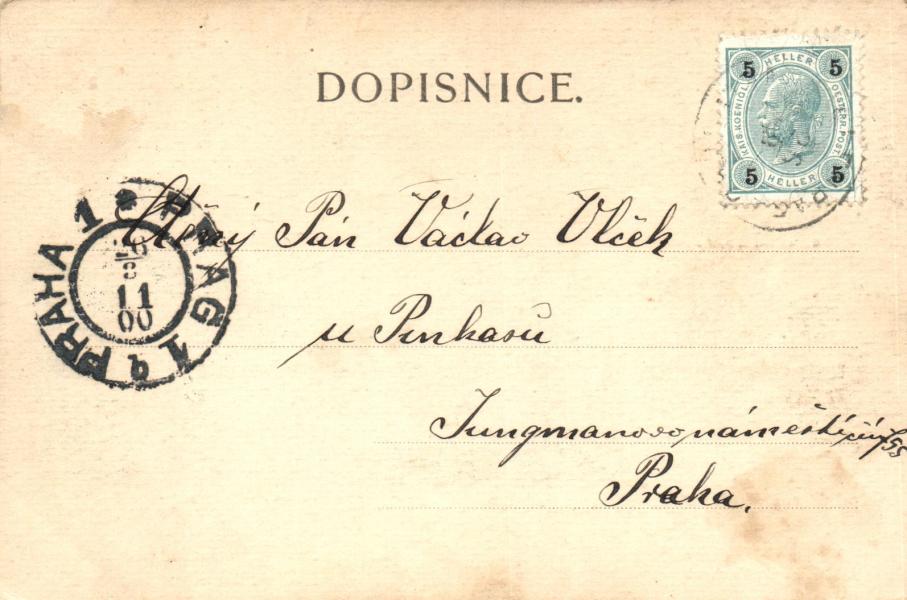 DOPISNICE.
5 HELLER 5
KAIS. KOENIGL. OESTERR. POST.
5 HELLER 5
PRAHA 1 PRAG 1
11
00
Ctěný Pán Václav Vlček
u Pinkasů
Jungmanovo náměstí
Praha.